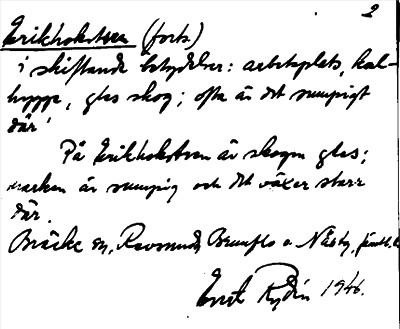 2
Erikholstren (forts.)
i skiftande betydelser: arbetsplats, kal-
hygge, gles skog; ofta är det sumpigt
där!
På Erikholstren är skogen gles;
marken är sumpig och det växer starr
där.
Bräcke sn, Revsunds, Brunflo o Näsby, Jämtl.
Ernst Rydén 1946.